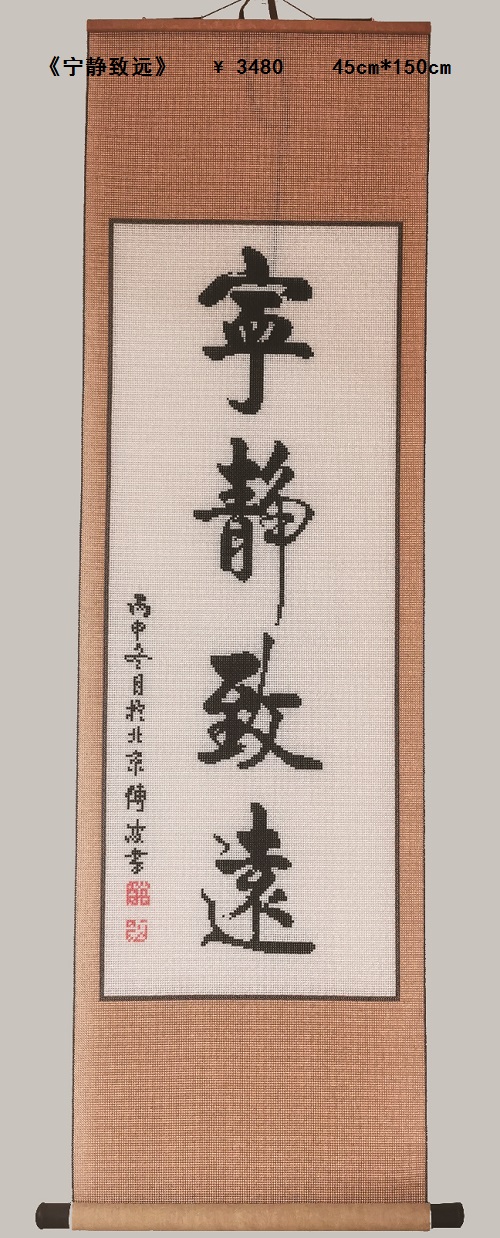 《宁静致远》 ￥ 3480 45cm*150cm
寧靜致遠
丙申冬月於北京傅波書